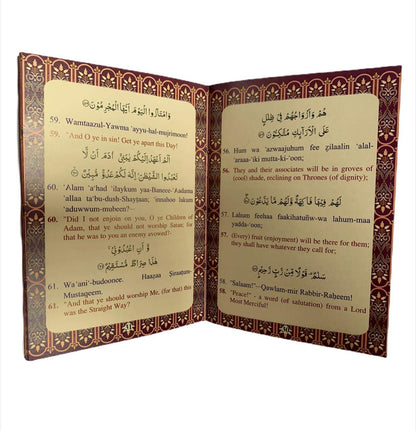 هُمْ وَأَزْوَاجُهُمْ فِي ظِلَٰلٍ
عَلَى الْأَرَآئِكِ مُتَّكِئُونَ ﴿٥٦﴾
56. Hum wa 'azwaajuhum fee zilaalin 'alal-
'araaa-'iki mutta-ki-'oon;
56. They and their associates will be in groves of
(cool) shade, reclining on Thrones (of dignity);
لَهُمْ فِيهَا فَاكِهَةٌ وَلَهُمْ مَا يَدَّعُونَ ﴿٥٧﴾
57. Lahum feehaa faakihatuñw-wa lahum-maa
yadda-'oon;
57. (Every) fruit (enjoyment) will be there for them;
they shall have whatever they call for;
سَلَٰمٌ قَوْلًا مِنْ رَبٍّ رَحِيمٍ ﴿٥٨﴾
58. "Salaam!"--Qawlam-mir Rabbir-Raheem!
58. "Peace!" - a word (of salutation) from a Lord
Most Merciful!
وَامْتَازُوا الْيَوْمَ أَيُّهَا الْمُجْرِمُونَ ﴿٥٩﴾
59. Wamtaazul-Yawma 'ayyu-hal-mujrimoon!
59. "And O ye in sin! Get ye apart this Day!
أَلَمْ أَعْهَدْ إِلَيْكُمْ يَٰبَنِي آدَمَ أَنْ لَا
تَعْبُدُوا الشَّيْطَٰنَ إِنَّهُ لَكُمْ عَدُوٌّ مُبِينٌ ﴿٦٠﴾
60. 'Alam 'a'had 'ilaykum yaa-Baneee-'Aadama
'allaa ta'bu-dush-Shaytaan; 'innahoo lakum
'aduwwum-mubeen?--
60. "Did I not enjoin on you, O ye Children of
Adam, that ye should not worship Satan; for
that he was to you an enemy avowed?-
وَأَنِ اعْبُدُونِي
هَٰذَا صِرَاطٌ مُسْتَقِيمٌ ﴿٦١﴾
61. Wa 'ani'-budoonee. Haazaa Siraatum-
Mustaqeem.
61. "And that ye should worship Me, (for that) this
was the Straight Way?